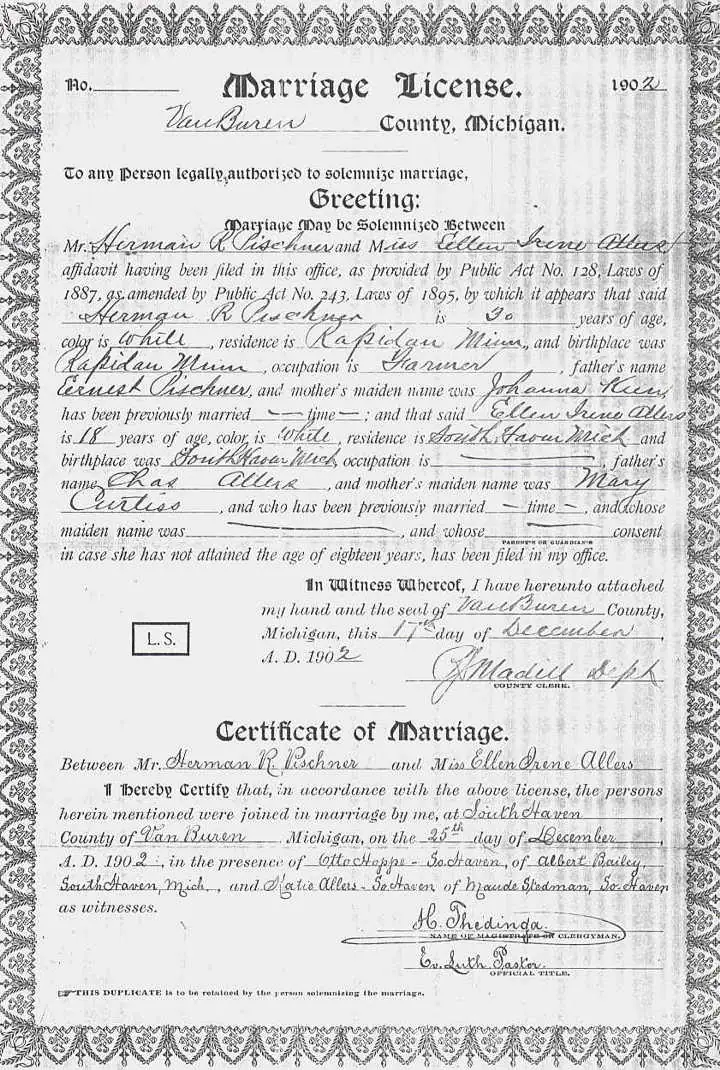 No. Marriage License. 1902
VanBuren County, Michigan.
To any Person legally authorized to solemnize marriage,
Greeting:
Marriage May be Solemnized Between
Mr. Herman R Pischner and Miss Ellen Irene Allers
affidavit having been filed in this office, as provided by Public Act No. 128, Laws of
1887, as amended by Public Act No. 243, Laws of 1895, by which it appears that said
Herman R Pischner is 30 years of age,
color is White, residence is Rapidan Minn, and birthplace was
Rapidan Minn, occupation is Farmer, father's name
Ernest Pischner, and mother's maiden name was Johanna
has been previously married — time — ; and that said Ellen Irene Allers
is 18 years of age, color is White, residence is South Haven Mich and
birthplace was South Haven Mich, occupation is —, father's
name Chas Allers, and mother's maiden name was Mary
Curtiss, and who has been previously married — time —, and whose
maiden name was —, and whose — consent
PARENT'S OR GUARDIAN'S
in case she has not attained the age of eighteen years, has been filed in my office.
In Witness Whereof, I have hereunto attached
my hand and the seal of VanBuren County,
L.S.
Michigan, this 17th day of December,
A. D. 1902
Madill Dept
COUNTY CLERK.
Certificate of Marriage.
Between Mr. Herman R. Pischner and Miss Ellen Irene Allers
I Hereby Certify that, in accordance with the above license, the persons
herein mentioned were joined in marriage by me, at South Haven,
County of Van Buren. Michigan, on the 25th day of December,
A. D. 1902, in the presence of Otto Hoppe - So. Haven, of Albert Bailey,
South Haven, Mich., and Katie Allers - So. Haven of Maude Stedman, So. Haven
as witnesses.
H. Thedinga.
NAME OF MAGISTRATE OR CLERGYMAN.
Ev. Luth Pastor.
OFFICIAL TITLE.
THIS DUPLICATE is to be retained by the person solemnizing the marriage.